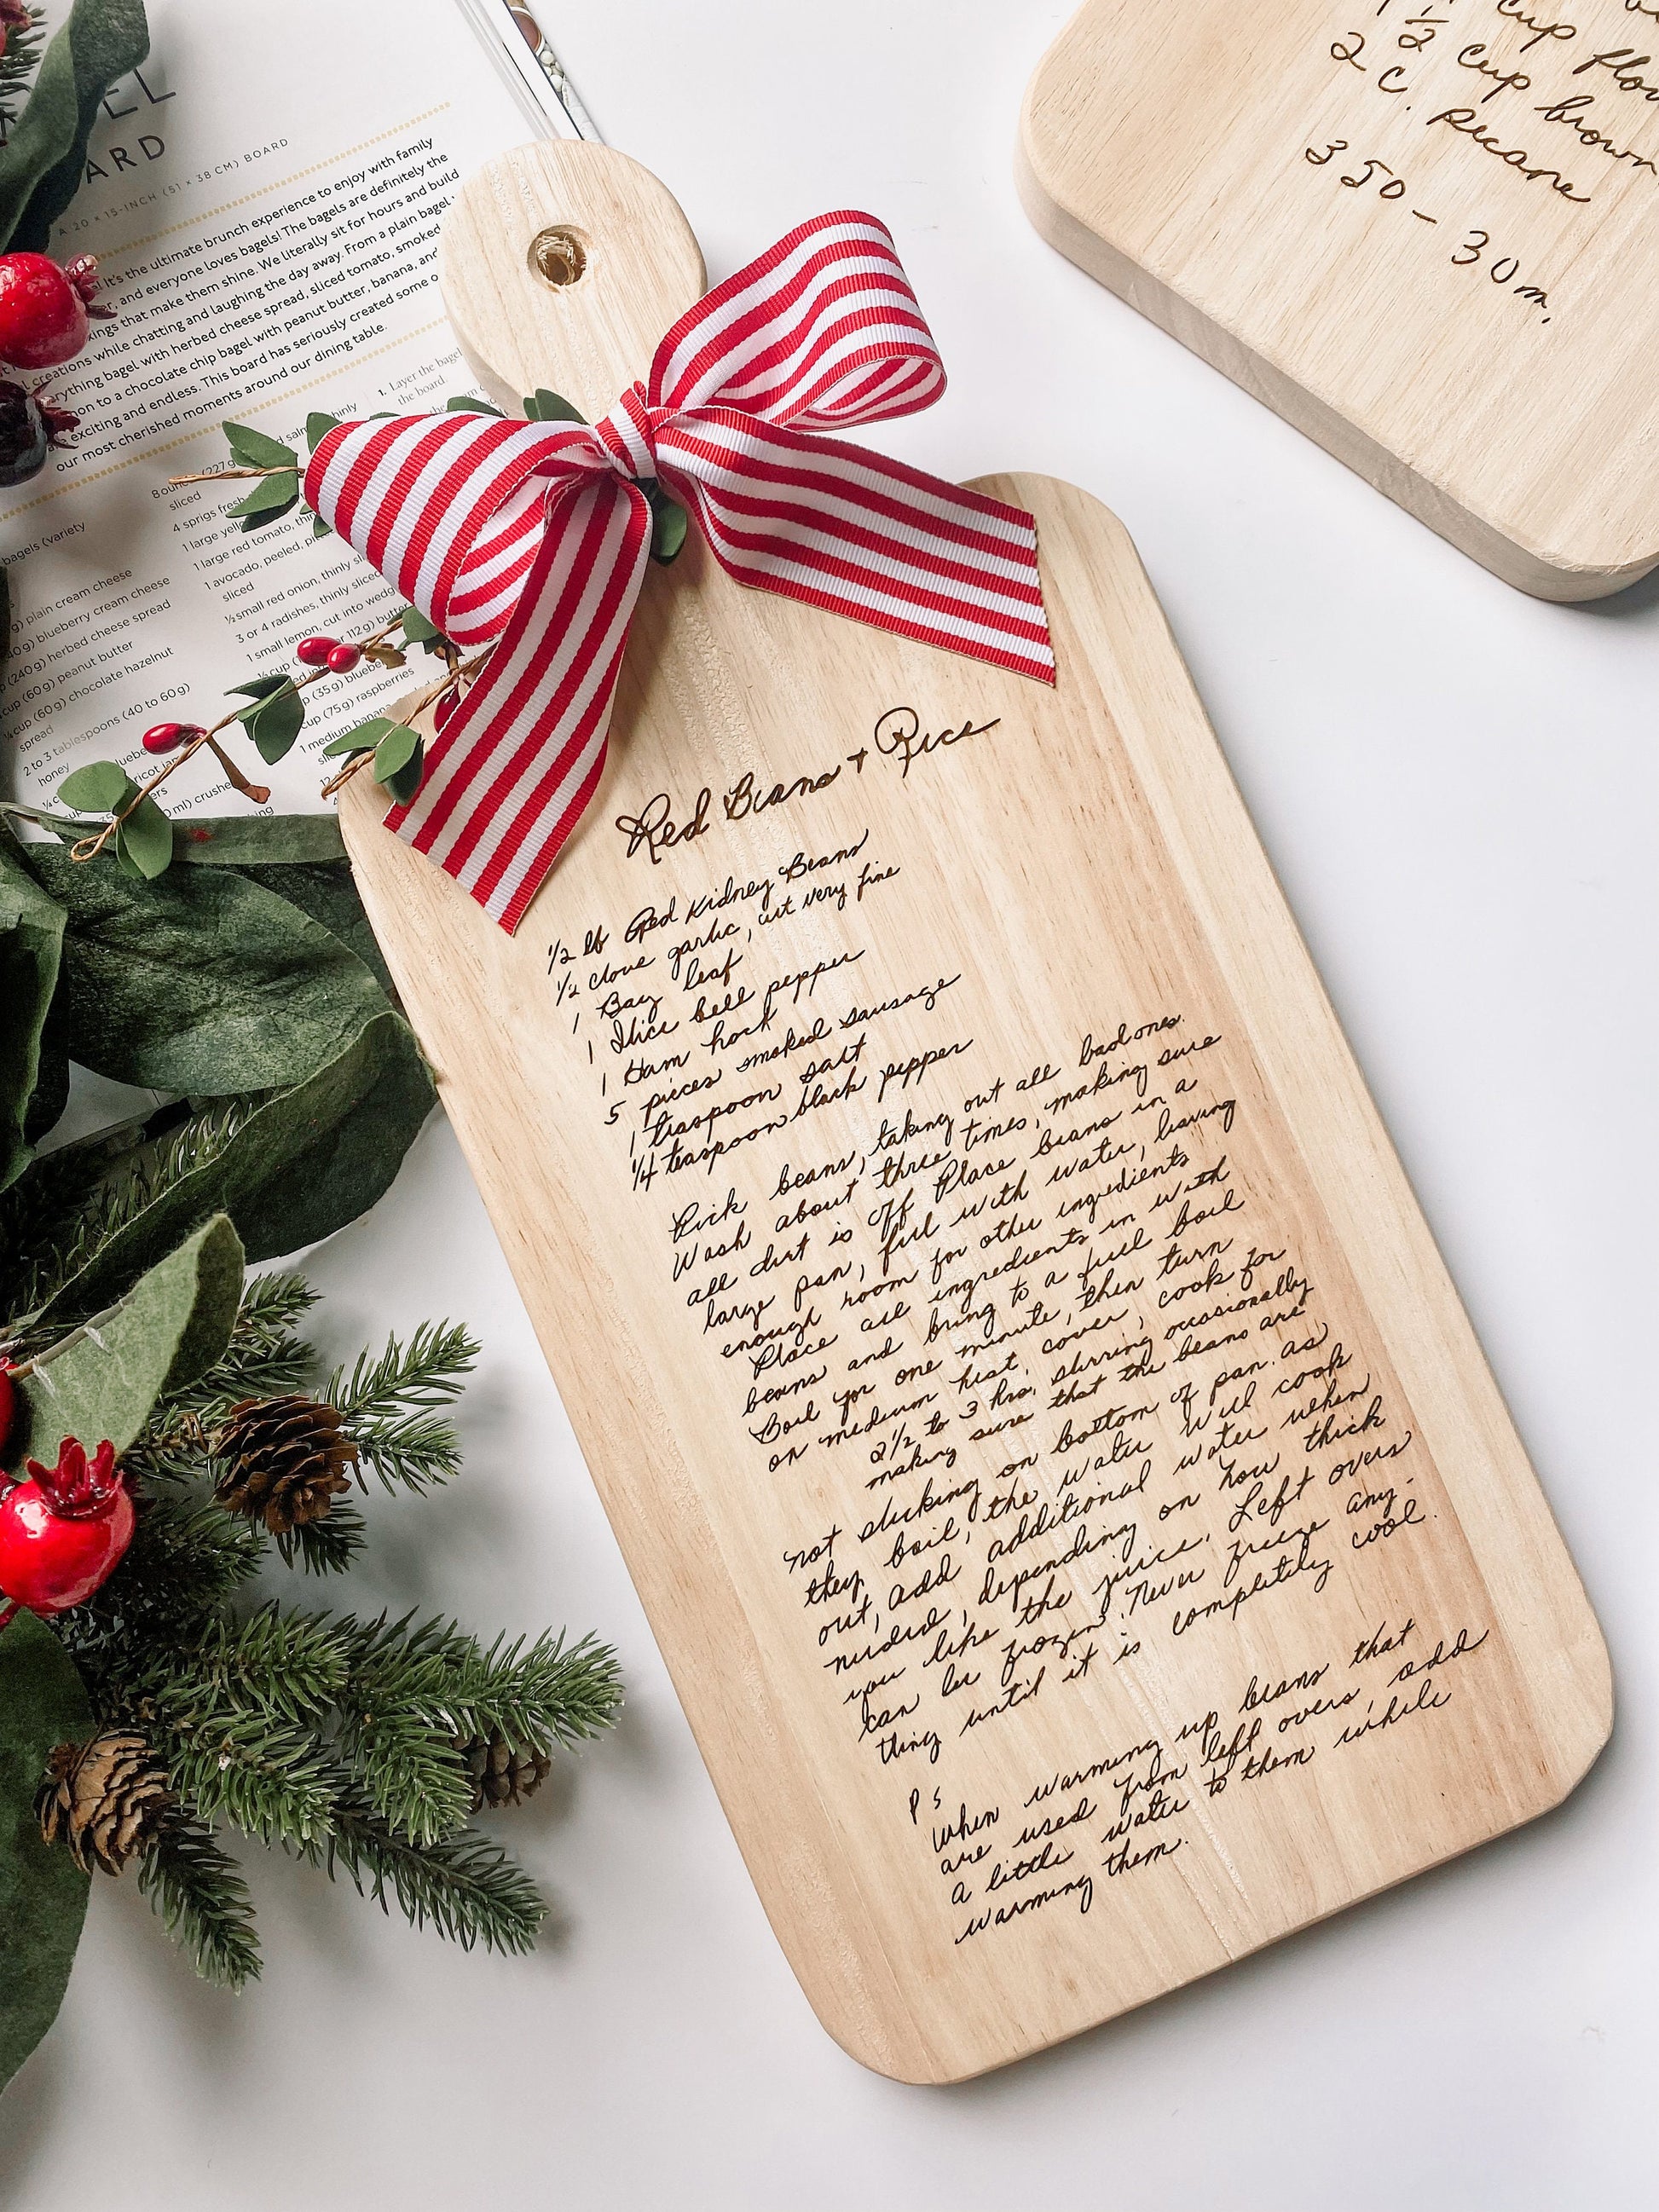 EL
ARD
A 20 × 15-INCH (51 × 38 CM) BOARD
It's the ultimate brunch experience to enjoy with family
and everyone loves bagels! The bagels are definitely the
ings that make them shine. We literally sit for hours and build
creations while chatting and laughing the day away. From a plain bagel
rything bagel with herbed cheese spread, sliced tomato, smoked
on to a chocolate chip bagel with peanut butter, banana, and
exciting and endless. This board has seriously created some o
our most cherished moments around our dining table.
bagels (variety
plain cream cheese
blueberry cream cheese
(240g) herbed cheese spread
(60g) peanut butter
cup (60g) chocolate hazelnut
spread
2 to 3 tablespoons (40 to 60g)
honey
8 oun (227g
sliced
4 sprigs fresh
1 large yell
1 large red tomato, thin
1 avocado, peeled, pi
sliced
½ small red onion, thinly sl
3 or 4 radishes, thinly sliced
1 small lemon, cut into wedg
112g) butter
(35g) blueber
cup (75g) raspberries
1 medium banana
1. Layer the bagel
the board.
cup flou
1/2 cup brown
2 c. pecans
350 - 30 m.
Red Beans + Rice
1/2 lb Red Kidney Beans
1/2 clove garlic, cut very fine
1 Bay leaf
1 Slice bell pepper
1 Ham hock
5 pieces smoked sausage
1 teaspoon salt
1/4 teaspoon black pepper
Pick beans, taking out all bad ones.
Wash about three times, making sure
all dirt is off Place beans in a
large pan, fill with water, leaving
enough room for other ingredients
Place all ingredients in with
beans and bring to a full boil
Boil for one minute, then turn
on medium heat, cover, cook for
2 1/2 to 3 hrs, stirring occasionally
making sure that the beans are
not sticking on bottom of pan. as
they boil, the water will cook
out, add additional water when
needed, depending on how thick
you like the juice. Left overs
can be frozen. Never freeze any-
thing until it is completely cool.
P S
When warming up beans that
are used from left overs, add
a little water to them while
warming them.